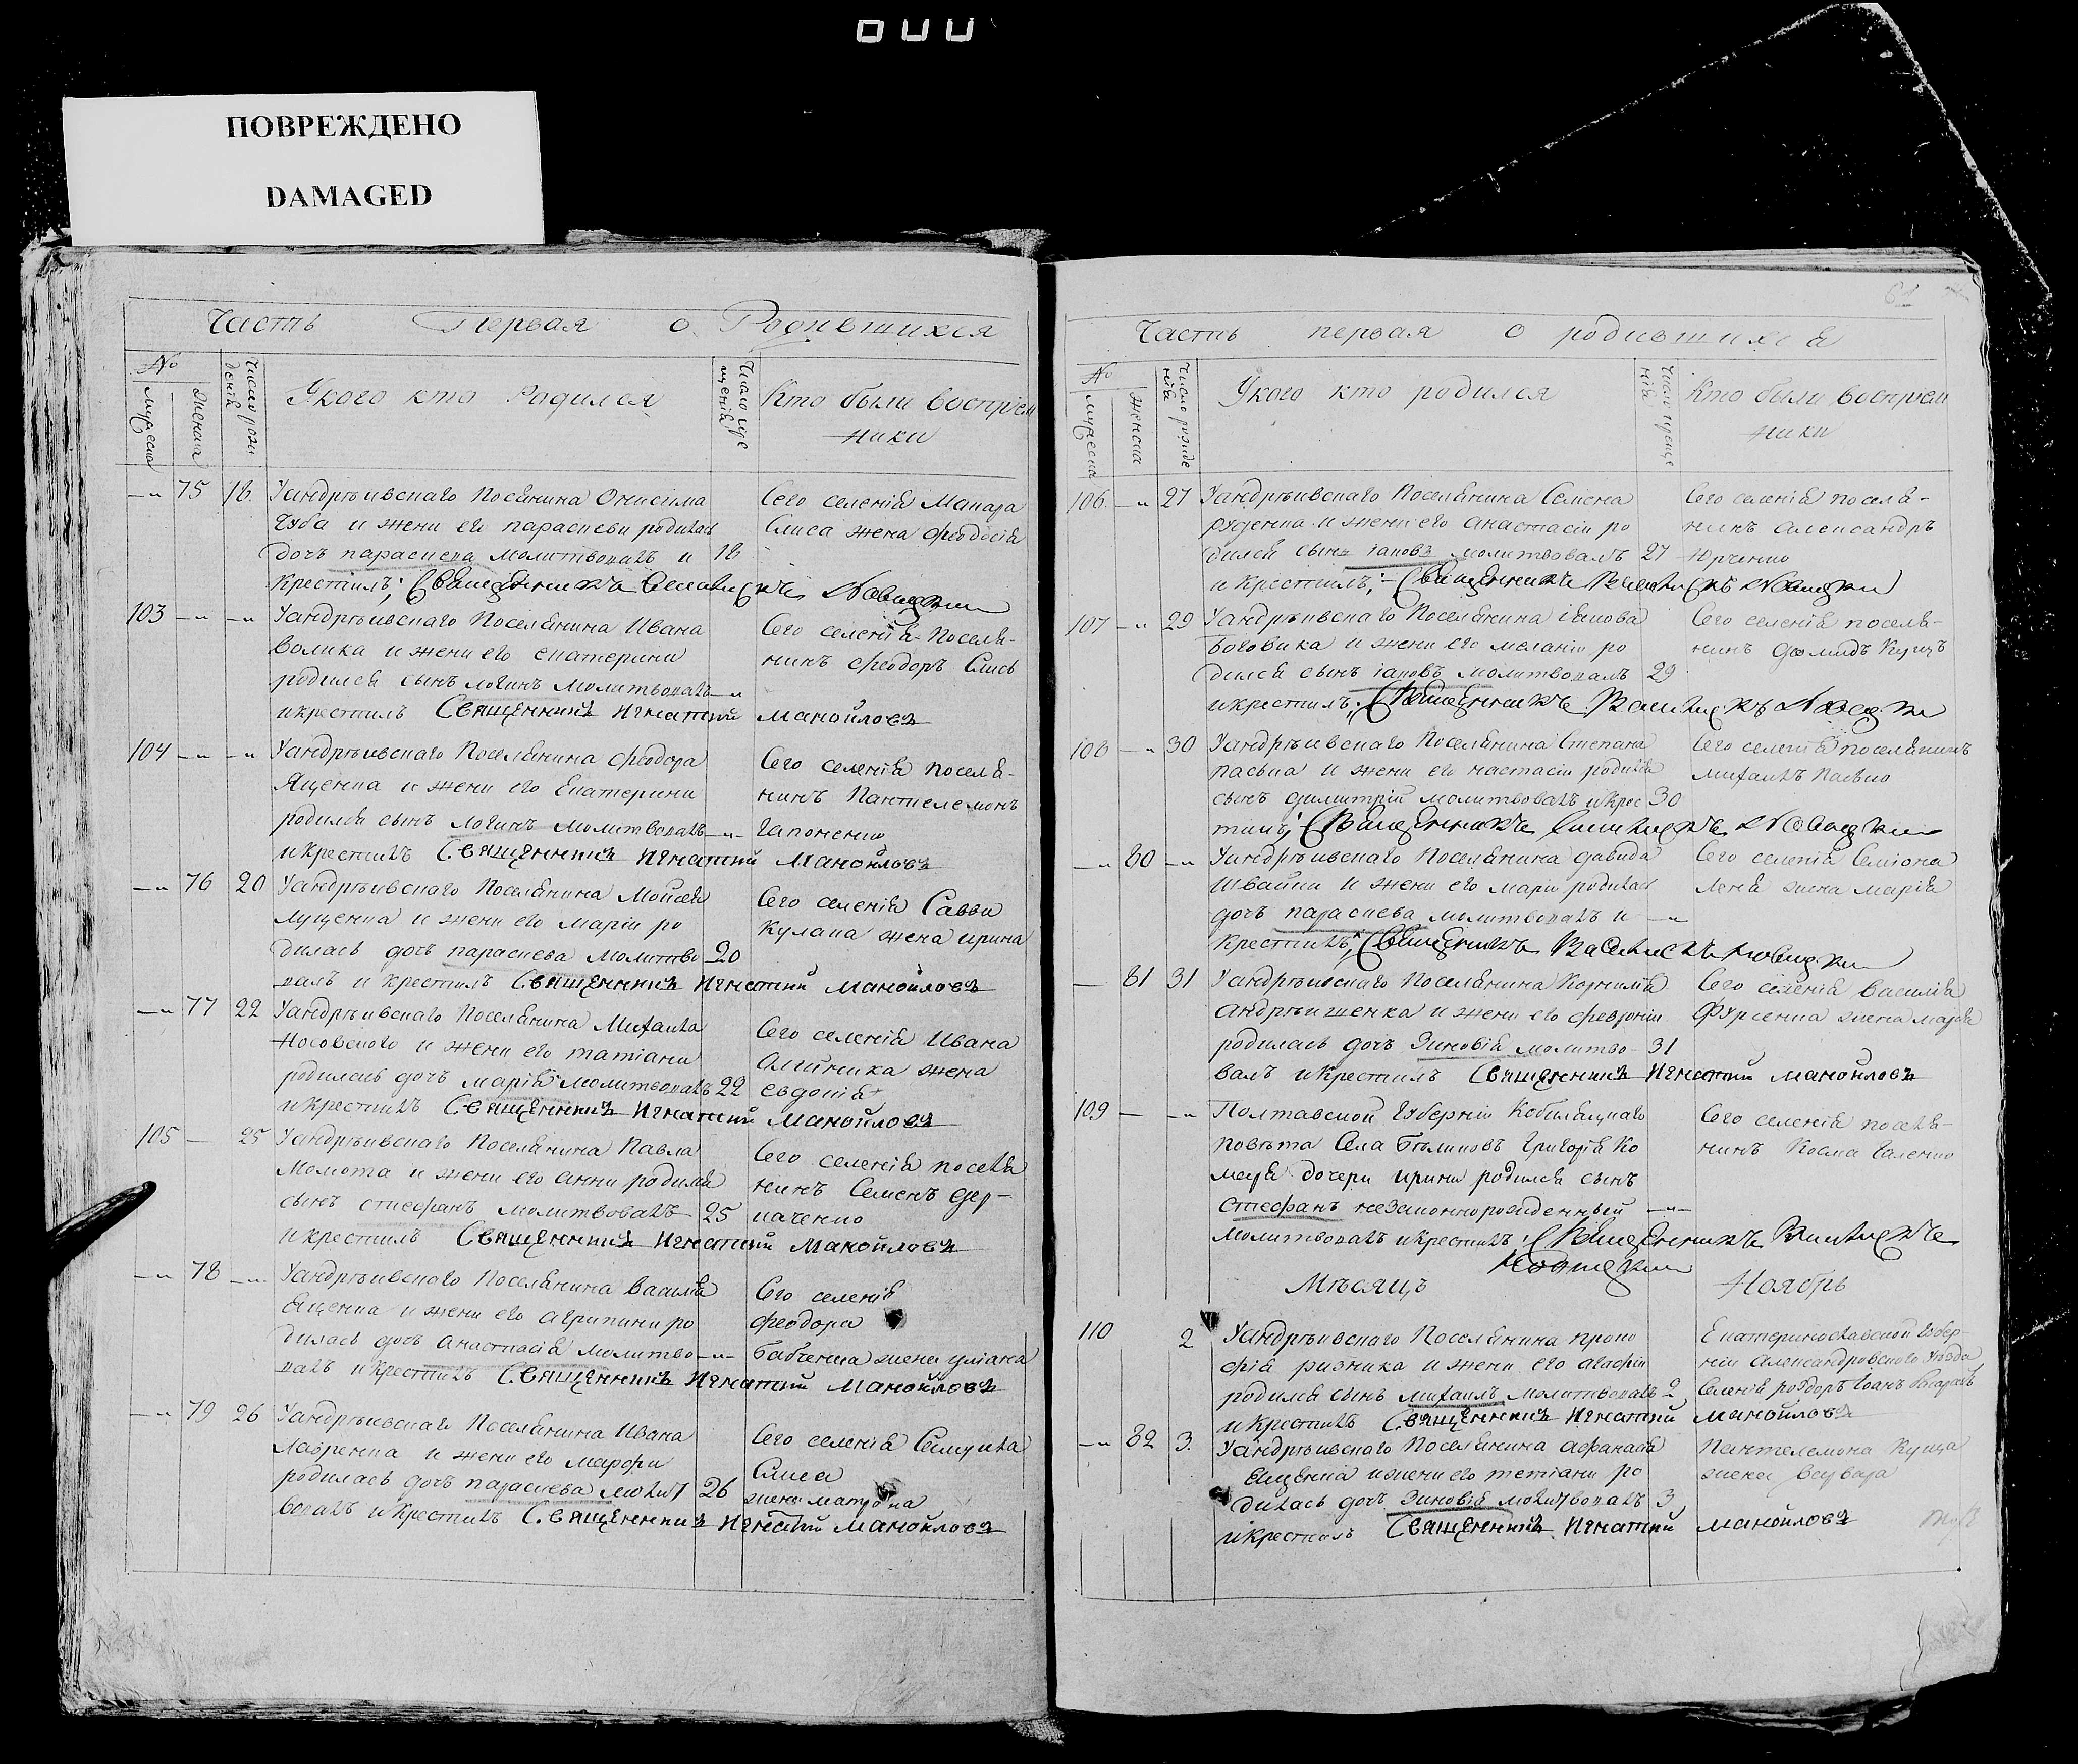 ПОВРЕЖДЕНО
DAMAGED
Часть Первая о Родившихся
№
мужеска
женска
Число рожденій
Укого кто Родился
Число крещеній
Кто были восприемники
75 18. Уандрѣивскаго Поселянина Онисима
Чуба и жени его параскеви родилась
дочъ параскева молитвовалъ и 18
крестилъ; Священникъ
Сего селенія Макара
Слиса жена феодосія
103 Уандрѣивскаго Поселянина Ивана
волика и жени его екатерини
родился сынъ логинъ молитвовалъ
икрестилъ Священникъ Игнатий Манойловъ
Сего селенія Поселя-
нинъ феодоръ Слисъ
104 Уандрѣивскаго Поселянина феодора
Яценка и жени его Екатерини
родился сынъ логинъ молитвовалъ
икрестилъ Священникъ Игнатий Манойловъ
Сего селенія поселя-
нинъ Пантелемонъ
Гапоненко
76 20 Уандрѣивскаго Поселянина Моисея
луценка и жени его маріи ро
дилась дочъ параскева молитво 20
валъ и крестилъ Священникъ Игнатий Манойловъ
Сего селенія Савви
Кулака жена ирина
77 22 Уандрѣивскаго Поселянина Михаила
Носовского и жени его татіани
родилась дочъ марія молитвовалъ 22
икрестилъ Священникъ Игнатий Манойловъ
Сего селенія Ивана
Алийника жена
евдокія
105 25 Уандрѣивскаго Поселянина Павла
Момота и жени его анни родился
сынъ стефанъ молитвовалъ 25
икрестилъ Священникъ Игнатий Манойловъ
Сего селенія поселя
нинъ Семенъ дер-
каченко
78 Уандрѣивскаго Поселянина василія
Яценка и жени его агрипини ро
дилась дочъ анастасія молитво
валъ икрестилъ Священникъ Игнатий Манойловъ
Сего селенія
феодора
Бабченка жена уліана
79 26 Уандрѣивскаго Поселянина Ивана
Лавренка и жени его марфи
родилась дочъ параскева молит 26
вовалъ икрестилъ Священникъ Игнатий Манойловъ
Сего селенія Самуила
Слиса
жена матрона
Часть первая о родившихся
№
мужеска
женска
Число рожденія
Укого кто родился
Число крещенія
Кто были восприемники
106. 27 Уандрѣивскаго Поселянина Семена
руденка и жени его анастасіи ро
дился сынъ іаковъ молитвовалъ 27
икрестилъ; Священникъ
Сего селенія поселя-
нинъ александръ
Юрченко
107 29 Уандрѣивскаго Поселянина іакова
боговика и жени его меланіи ро
дился сынъ іаковъ молитвовалъ 29
икрестилъ; Священникъ
Сего селенія поселя-
нинъ Куцъ
108 30 Уандрѣивскаго Поселянина Степана
паська и жени его настасіи родился
сынъ димитрій молитвовалъ икрес 30
тилъ; Священникъ
Сего селенія поселянинъ
михаилъ пасько
80 Уандрѣивскаго Поселянина давида
швайки и жени его маріи родилась
дочъ параскева молитвовалъ и
крестилъ; Священникъ
Сего селенія Симіона
жена марія
81 31 Уандрѣивскаго Поселянина Корнилія
андрѣищенка и жени его февроніи
родилась дочъ Зиновія молитво- 31
валъ икрестилъ Священникъ Игнатий Манойловъ
Сего селенія василія
Фурсенка жена марія
109 Полтавской губерніи Кобиляцкаго
повѣта Села Бѣликовъ григорія Ко
маря дочери ирини родился сынъ
стефанъ незаконнорожденный
молитвовалъ икрестилъ; Священникъ
Сего селенія поселя-
нинъ Косма Галенко
Мѣсяцъ Ноябрь
110 2 Уандрѣивскаго Поселянина проко
фія ризника и жени его агафіи
родился сынъ михаилъ молитвовалъ 2
икрестилъ Священникъ Игнатий Манойловъ
Екатеринославской Губер-
ніи александровского Уѣзда
селенія
82 3. Уандрѣивскаго Поселянина афанасія
Яценка ижени его тетіани ро
дилась дочъ Зиновія молитвовалъ 3
икрестилъ Священникъ Игнатий Манойловъ
Пантелемона Куцка
жена варвара